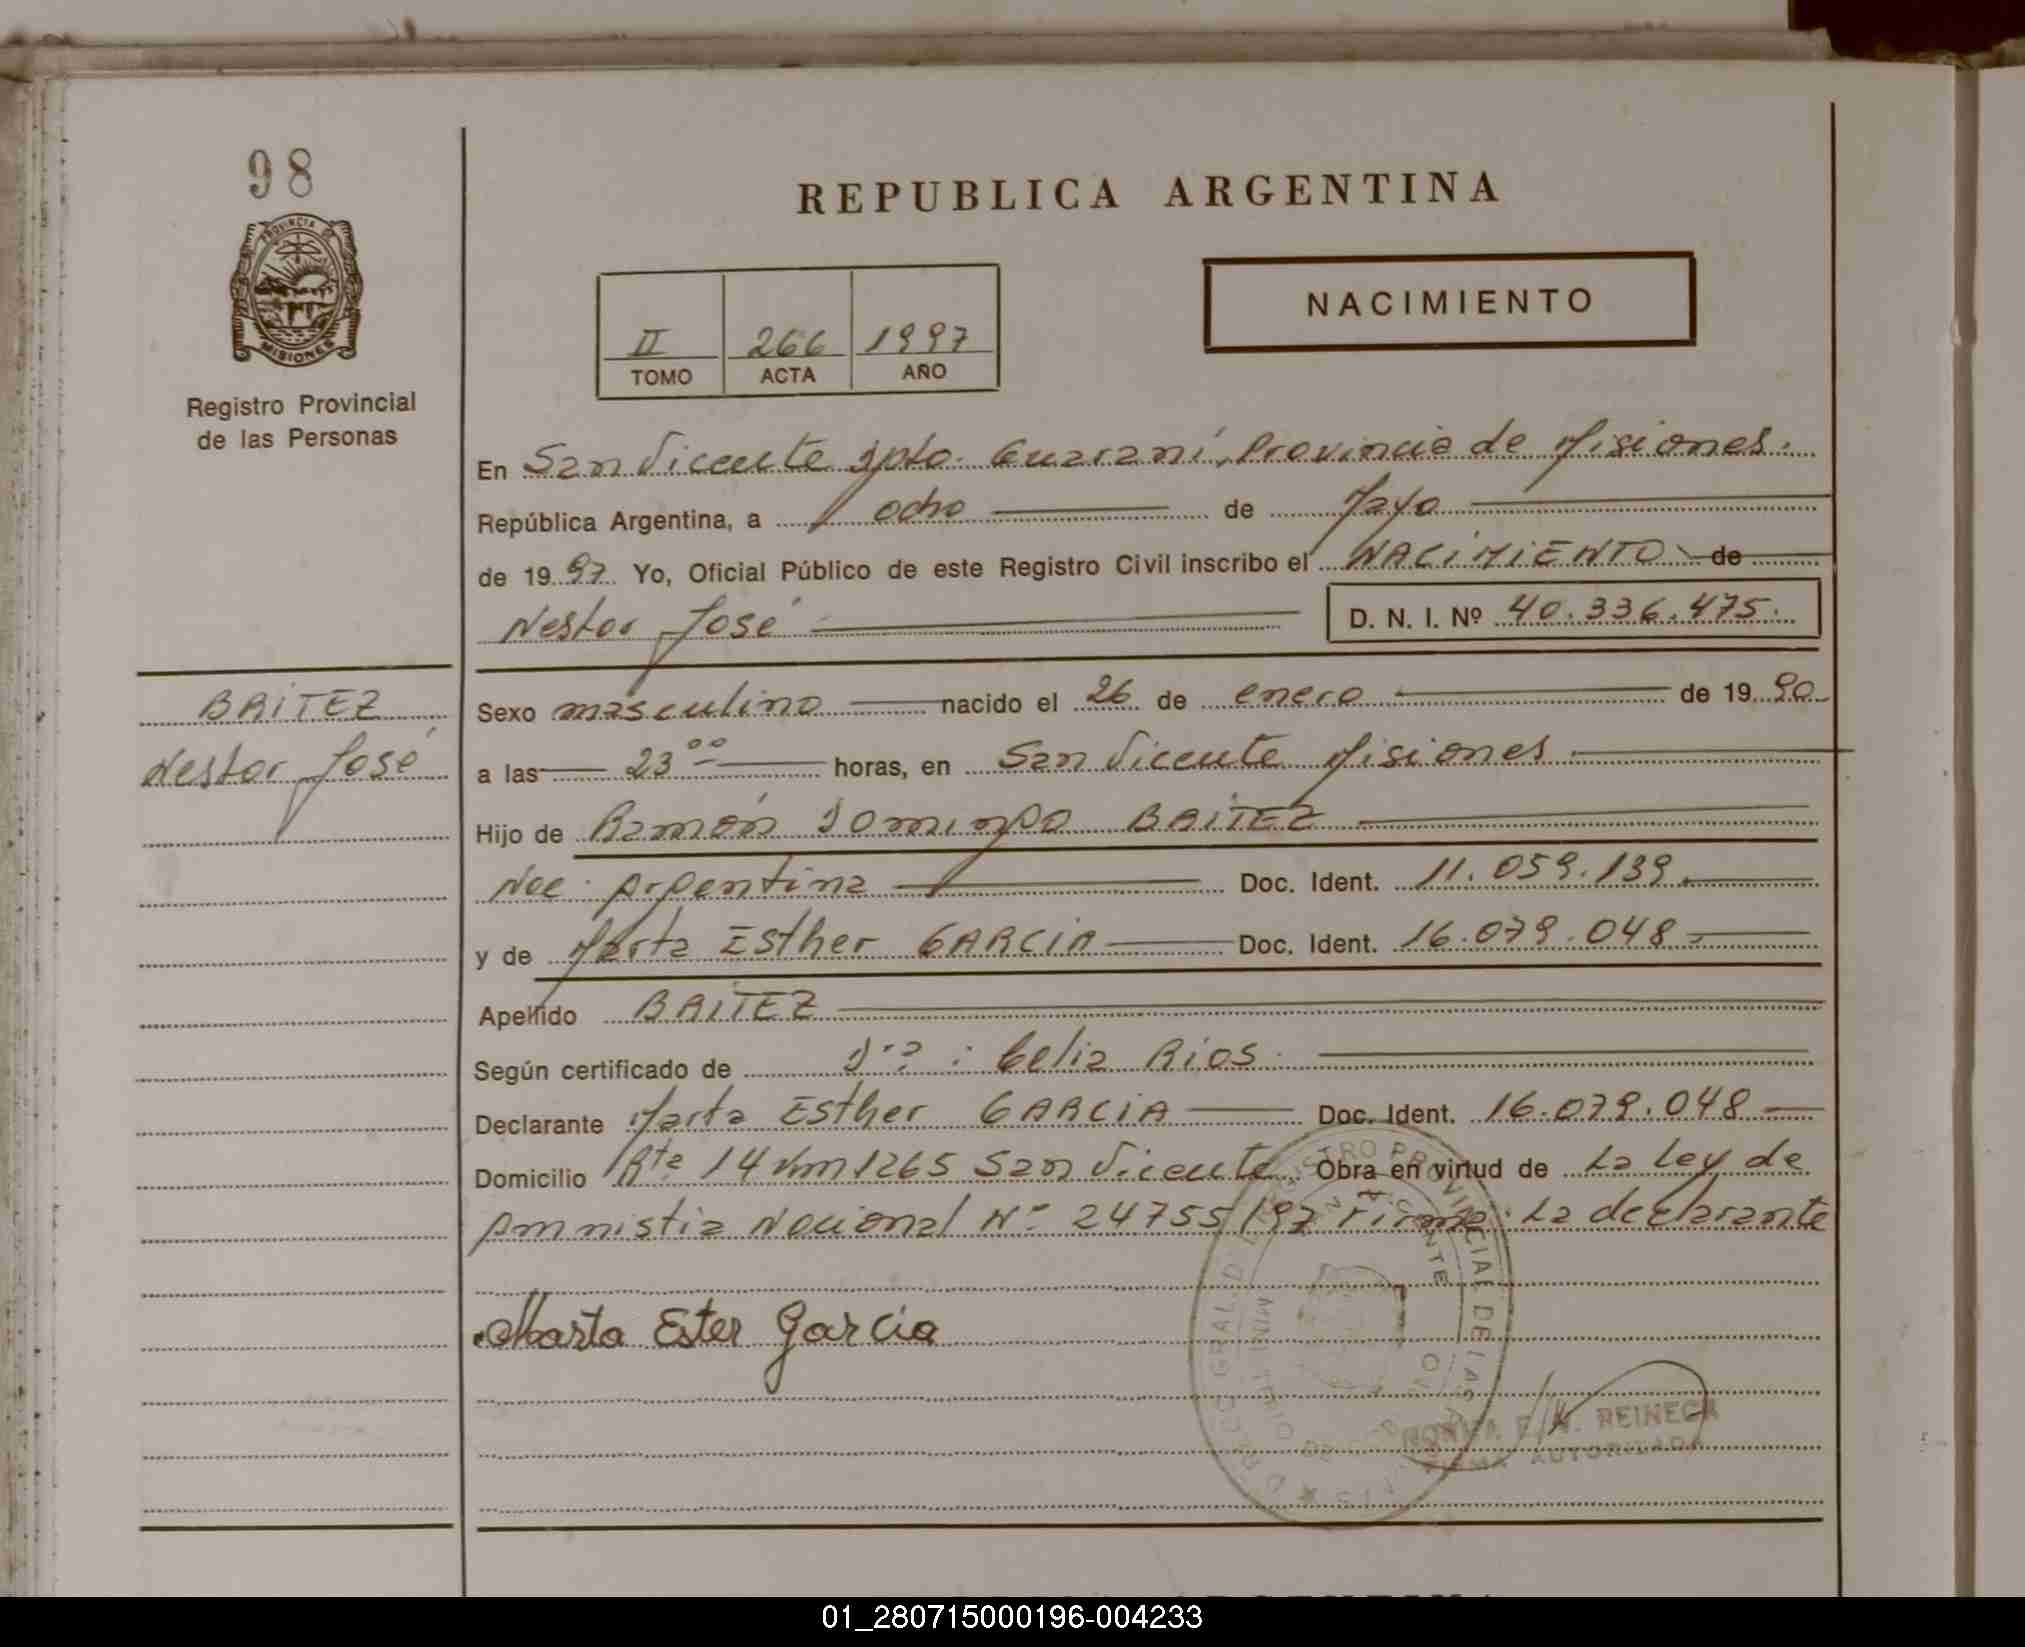 98
PROVINCIA DE
MISIONES
Registro Provincial
de las Personas
REPUBLICA ARGENTINA
II 266 1997
TOMO ACTA AÑO
NACIMIENTO
En San Vicente Dpto. Guaraní, Provincia de Misiones.
República Argentina, a ocho de Mayo
de 1997 Yo, Oficial Público de este Registro Civil inscribo el NACIMIENTO de
Nestor José D. N. I. Nº 40.336.475.
BRITEZ
Nestor José
Sexo masculino nacido el 26 de enero de 1990
a las 23ºº horas, en San Vicente Misiones
Hijo de Ramón Domingo BRITEZ
Nac. Argentina Doc. Ident. 11.059.139
y de Marta Esther GARCIA Doc. Ident. 16.079.048
Apellido BRITEZ
Según certificado de Dra: Celia Rios.
Declarante Marta Esther GARCIA Doc. Ident. 16.079.048
Domicilio Rta 14 Km 1265 San Vicente Obra en virtud de La Ley de
Amnistia Nacional Nº 24755/97 Firma: La declarante
Marta Ester Garcia
REGISTRO PROVINCIAL DE LAS
REINECK
FIRMA AUTORIZADA
01_280715000196-004233